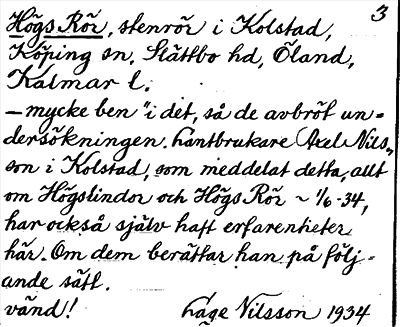 3
Högs Rör, stenrör i Kolstad,
Köping sn, Slättbo hd, Öland,
Kalmar l.
— mycke ben" i det, så de avbröt un=
dersökningen. Lantbrukare Axel Nils„
son i Kolstad, som meddelat detta, allt
om Högslindor och Högs Rör ~ 1/6 -34,
har också själv haft erfarenheter
här. Om dem berättar han på följ=
ande sätt.
vänd! Låge Nilsson 1934